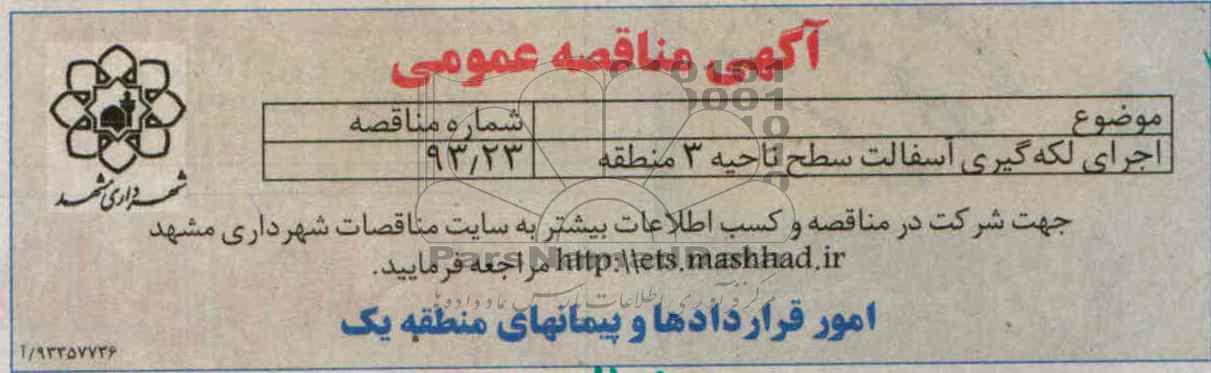 آگهی مناقصه عمومی
موضوع شماره مناقصه
اجرای لکه گیری آسفالت سطح ناحیه ۳ منطقه ۹۳٫۲۳
شهرداری مشهد
جهت شرکت در مناقصه و کسب اطلاعات بیشتر به سایت مناقصات شهرداری مشهد
http:\\ets.mashhad.ir مراجعه فرمایید.
ParsNamadData
امور قراردادها و پیمانهای منطقه یک
۹۳۳۵۷۷۳۶/آ